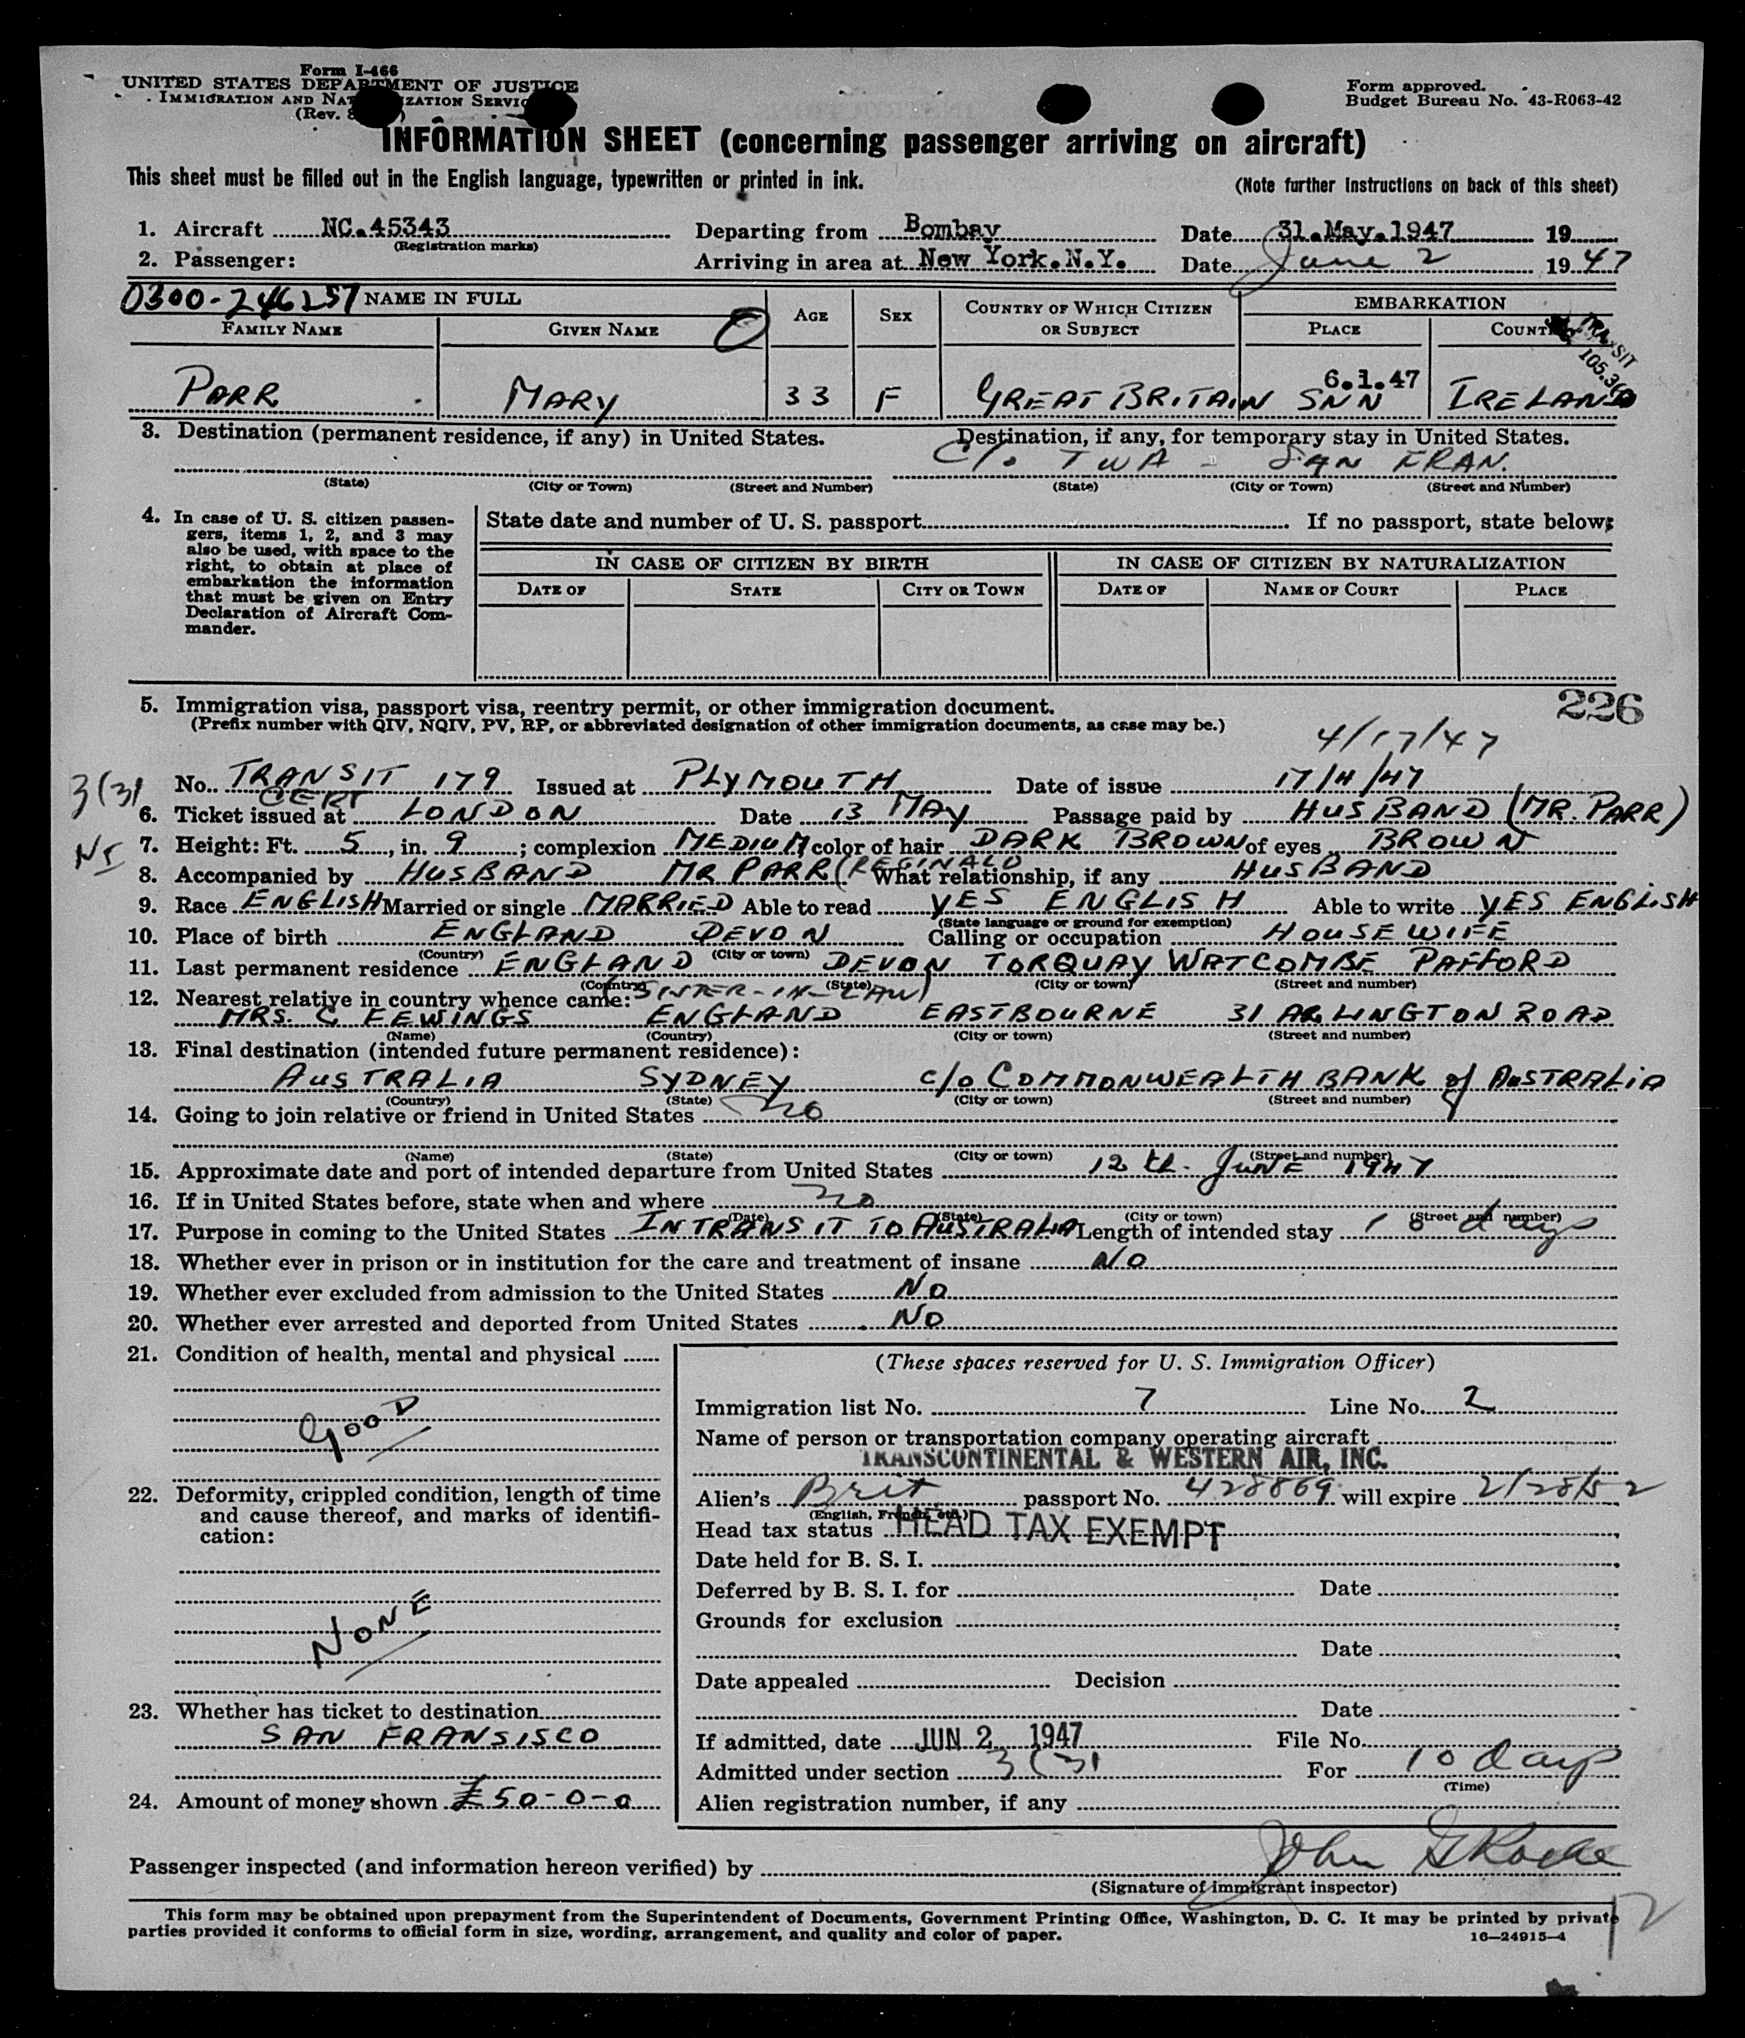 Form I-466
UNITED STATES DEPARTMENT OF JUSTICE
IMMIGRATION AND NATURALIZATION SERVICE
(Rev.
Form approved.
Budget Bureau No. 43-R063-42
INFORMATION SHEET (concerning passenger arriving on aircraft)
This sheet must be filled out in the English language, typewritten or printed in ink.
(Note further instructions on back of this sheet)
1. Aircraft NC.45343 Departing from Bombay Date 31.May.1947 19
(Registration marks)
2. Passenger: Arriving in area at New York.N.Y. Date June 2 1947
0300-246257 NAME IN FULL
FAMILY NAME GIVEN NAME AGE SEX COUNTRY OF WHICH CITIZEN OR SUBJECT EMBARKATION PLACE COUNTRY
TRANSIT
6.1.47
PARR MARY 33 F GREAT BRITAIN SNN IRELAND
3. Destination (permanent residence, if any) in United States. Destination, if any, for temporary stay in United States.
C/o TWA - SAN FRAN.
(State) (City or Town) (Street and Number) (State) (City or Town) (Street and Number)
4. In case of U. S. citizen passengers, items 1, 2, and 3 may also be used, with space to the right, to obtain at place of embarkation the information that must be given on Entry Declaration of Aircraft Commander.
State date and number of U. S. passport If no passport, state below:
IN CASE OF CITIZEN BY BIRTH IN CASE OF CITIZEN BY NATURALIZATION
DATE OF STATE CITY OR TOWN DATE OF NAME OF COURT PLACE
5. Immigration visa, passport visa, reentry permit, or other immigration document.
226
(Prefix number with QIV, NQIV, PV, RP, or abbreviated designation of other immigration documents, as case may be.)
4/17/47
3(3)
No. TRANSIT CERT 179 Issued at PLYMOUTH Date of issue 17/4/47
6. Ticket issued at LONDON Date 13 MAY Passage paid by HUSBAND (MR. PARR)
NI
7. Height: Ft. 5, in. 9; complexion MEDIUM color of hair DARK BROWN of eyes BROWN
8. Accompanied by HUSBAND MR PARR (REGINALD What relationship, if any HUSBAND
9. Race ENGLISH Married or single MARRIED Able to read YES ENGLISH Able to write YES ENGLISH
(State language or ground for exemption)
10. Place of birth ENGLAND DEVON Calling or occupation HOUSEWIFE
(Country) (City or town)
11. Last permanent residence ENGLAND DEVON TORQUAY WATCOMBE PAFFORD
(Country) (State) (City or town) (Street and number)
12. Nearest relative in country whence came: (SISTER-IN-LAW)
MRS. C EEWINGS ENGLAND EASTBOURNE 31 ARLINGTON ROAD
(Name) (Country) (City or town) (Street and number)
13. Final destination (intended future permanent residence):
AUSTRALIA SYDNEY c/o COMMONWEALTH BANK of AUSTRALIA
(Country) (State) (City or town) (Street and number)
14. Going to join relative or friend in United States no
(Name) (State) (City or town) (Street and number)
15. Approximate date and port of intended departure from United States 12th. JUNE 1947
16. If in United States before, state when and where no
(Date) (State) (City or town) (Street and number)
17. Purpose in coming to the United States IN TRANSIT TO AUSTRALIA Length of intended stay 10 days
18. Whether ever in prison or in institution for the care and treatment of insane NO
19. Whether ever excluded from admission to the United States No
20. Whether ever arrested and deported from United States No
21. Condition of health, mental and physical
GOOD
22. Deformity, crippled condition, length of time and cause thereof, and marks of identification:
NONE
23. Whether has ticket to destination
SAN FRANSISCO
24. Amount of money shown £50-0-0
(These spaces reserved for U. S. Immigration Officer)
Immigration list No. 7 Line No. 2
Name of person or transportation company operating aircraft
TRANSCONTINENTAL & WESTERN AIR, INC.
Alien's Brit passport No. 428869 will expire 2/28/52
(English, French, etc.)
Head tax status HEAD TAX EXEMPT
Date held for B. S. I.
Deferred by B. S. I. for Date
Grounds for exclusion
Date
Date appealed Decision
Date
If admitted, date JUN 2 1947 File No.
Admitted under section 3(3) For 10 days
(Time)
Alien registration number, if any
Passenger inspected (and information hereon verified) by John
(Signature of immigrant inspector)
This form may be obtained upon prepayment from the Superintendent of Documents, Government Printing Office, Washington, D. C. It may be printed by private
parties provided it conforms to official form in size, wording, arrangement, and quality and color of paper.
16—24915-4
12